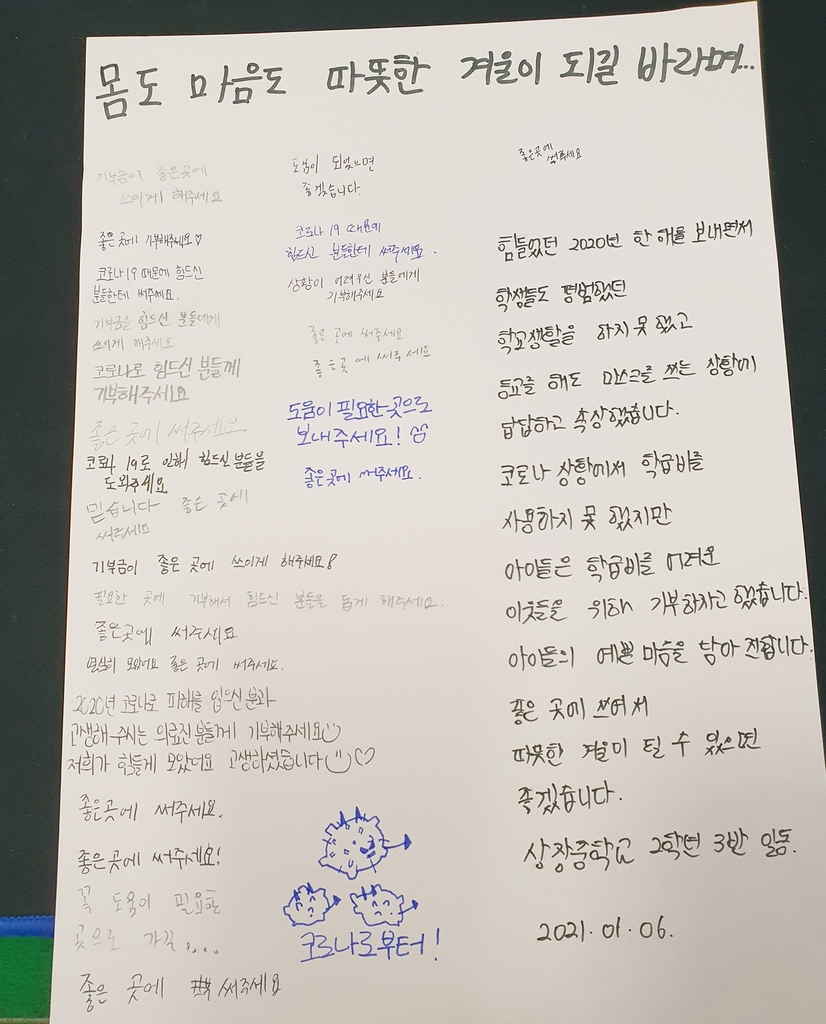 몸도 마음도 따뜻한 겨울이 되길 바라며...
기부금이 좋은곳에
쓰이게 해주세요
좋은곳에 기부해주세요♡
코로나19 때문에 힘드신
분들한테 써주세요.
기부금을 힘드신 분들에게
쓰이게 해주세요
코로나로 힘드신 분들께
기부해주세요
좋은 곳에 써주세요
코로나 19로 인해 힘드신 분들을
도와주세요
믿습니다 좋은 곳에
써주세요
기부금이 좋은 곳에 쓰이게 해주세요!
필요한 곳에 기부해서 힘드신 분들을 돕게 해주세요.
좋은곳에 써주세요
열심히 모았어요 좋은 곳에 써주세요.
2020년 코로나로 피해를 입으신 분과
고생해 주시는 의료진분들께 기부해주세요
저희가 힘들게 모았어요 고생하셨습니다 ♡
좋은곳에 써주세요.
좋은곳에 써주세요!
꼭 도움이 필요한
곳으로 가길....
좋은 곳에 써주세요
도움이 되었으면
좋겠습니다.
코로나 19 때문에
힘드신 분들한테 써주세요.
상황이 어려우신 분들에게
기부해주세요
좋은 곳에 써주세요
좋은곳에 써주세요
도움이 필요한 곳으로
보내주세요!
좋은곳에 써주세요.
코로나로부터!
좋은곳에
써주세요
힘들었던 2020년 한 해를 보내면서
학생들도 평범했던
학교생활을 하지 못 했고
등교를 해도 마스크를 쓰는 상황에
답답하고 속상했습니다.
코로나 상황에서 학급비를
사용하지 못 했지만
아이들은 학급비를 어려운
이웃들을 위해 기부하자고 했습니다.
아이들의 예쁜 마음을 담아 전합니다.
좋은 곳에 쓰여서
따뜻한 겨울이 될 수 있으면
좋겠습니다.
상장중학교 2학년 3반 일동.
2021.01.06.